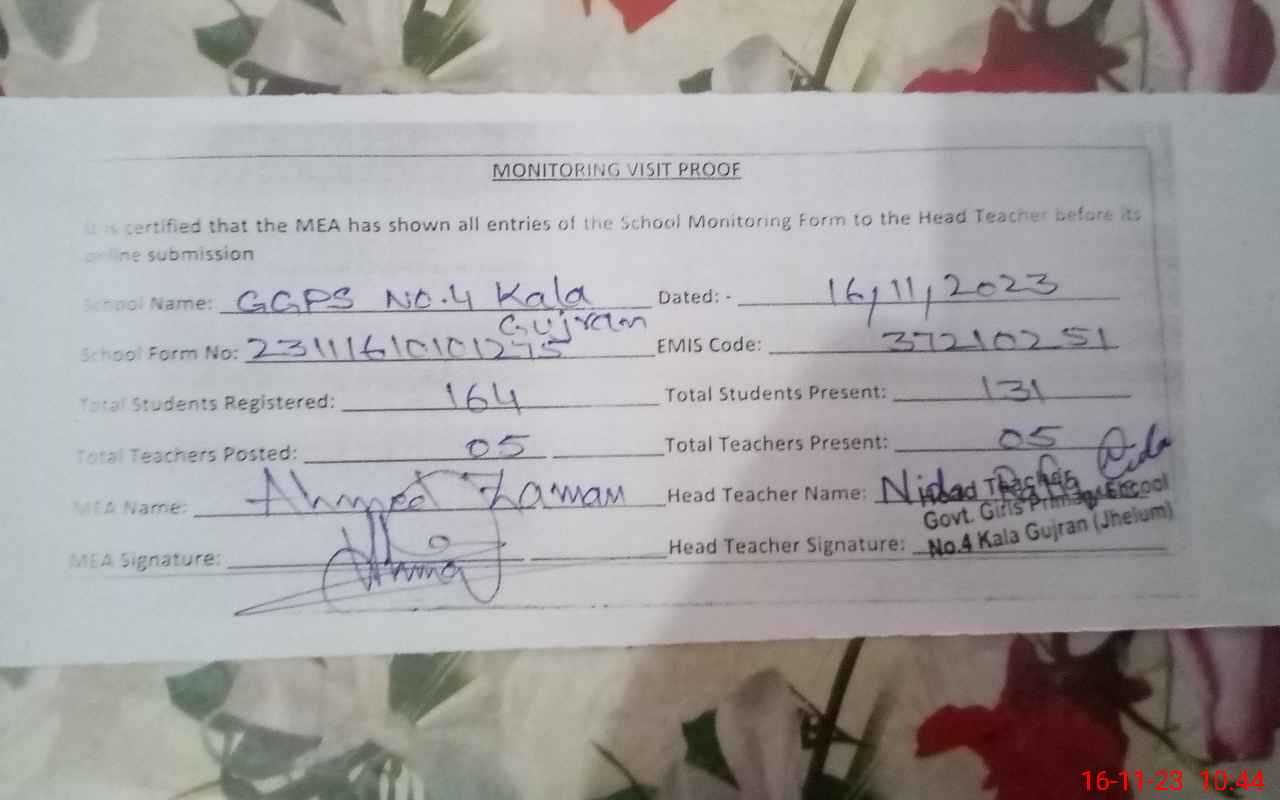 MONITORING VISIT PROOF
It is certified that the MEA has shown all entries of the School Monitoring Form to the Head Teacher before its
online submission
School Name: GGPS No.4 Kala Gujran Dated: - 16,11,2023
School Form No: EMIS Code: 37210251
Total Students Registered: 164 Total Students Present: 131
Total Teachers Posted: 05 Total Teachers Present: 05
MEA Name: Ahmed Zaman Head Teacher Name:
Head Teacher
Govt. Girls Primary School
MEA Signature: Head Teacher Signature: No.4 Kala Gujran (Jhelum)
16-11-23 10:44